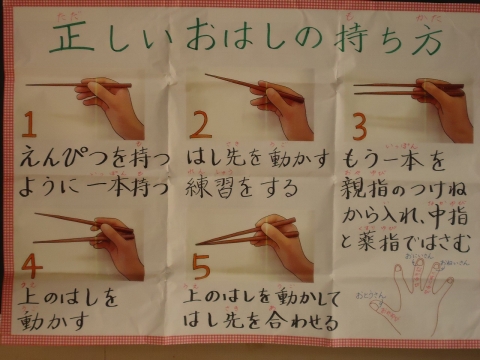 正しいおはしの持ち方
1
えんぴつを持つ
ように一本持つ
2
はし先を動かす
練習をする
3
もう一本を
親指のつけね
から入れ、中指
と薬指ではさむ
4
上のはしを
動かす
5
上のはしを動かして
はし先を合わせる